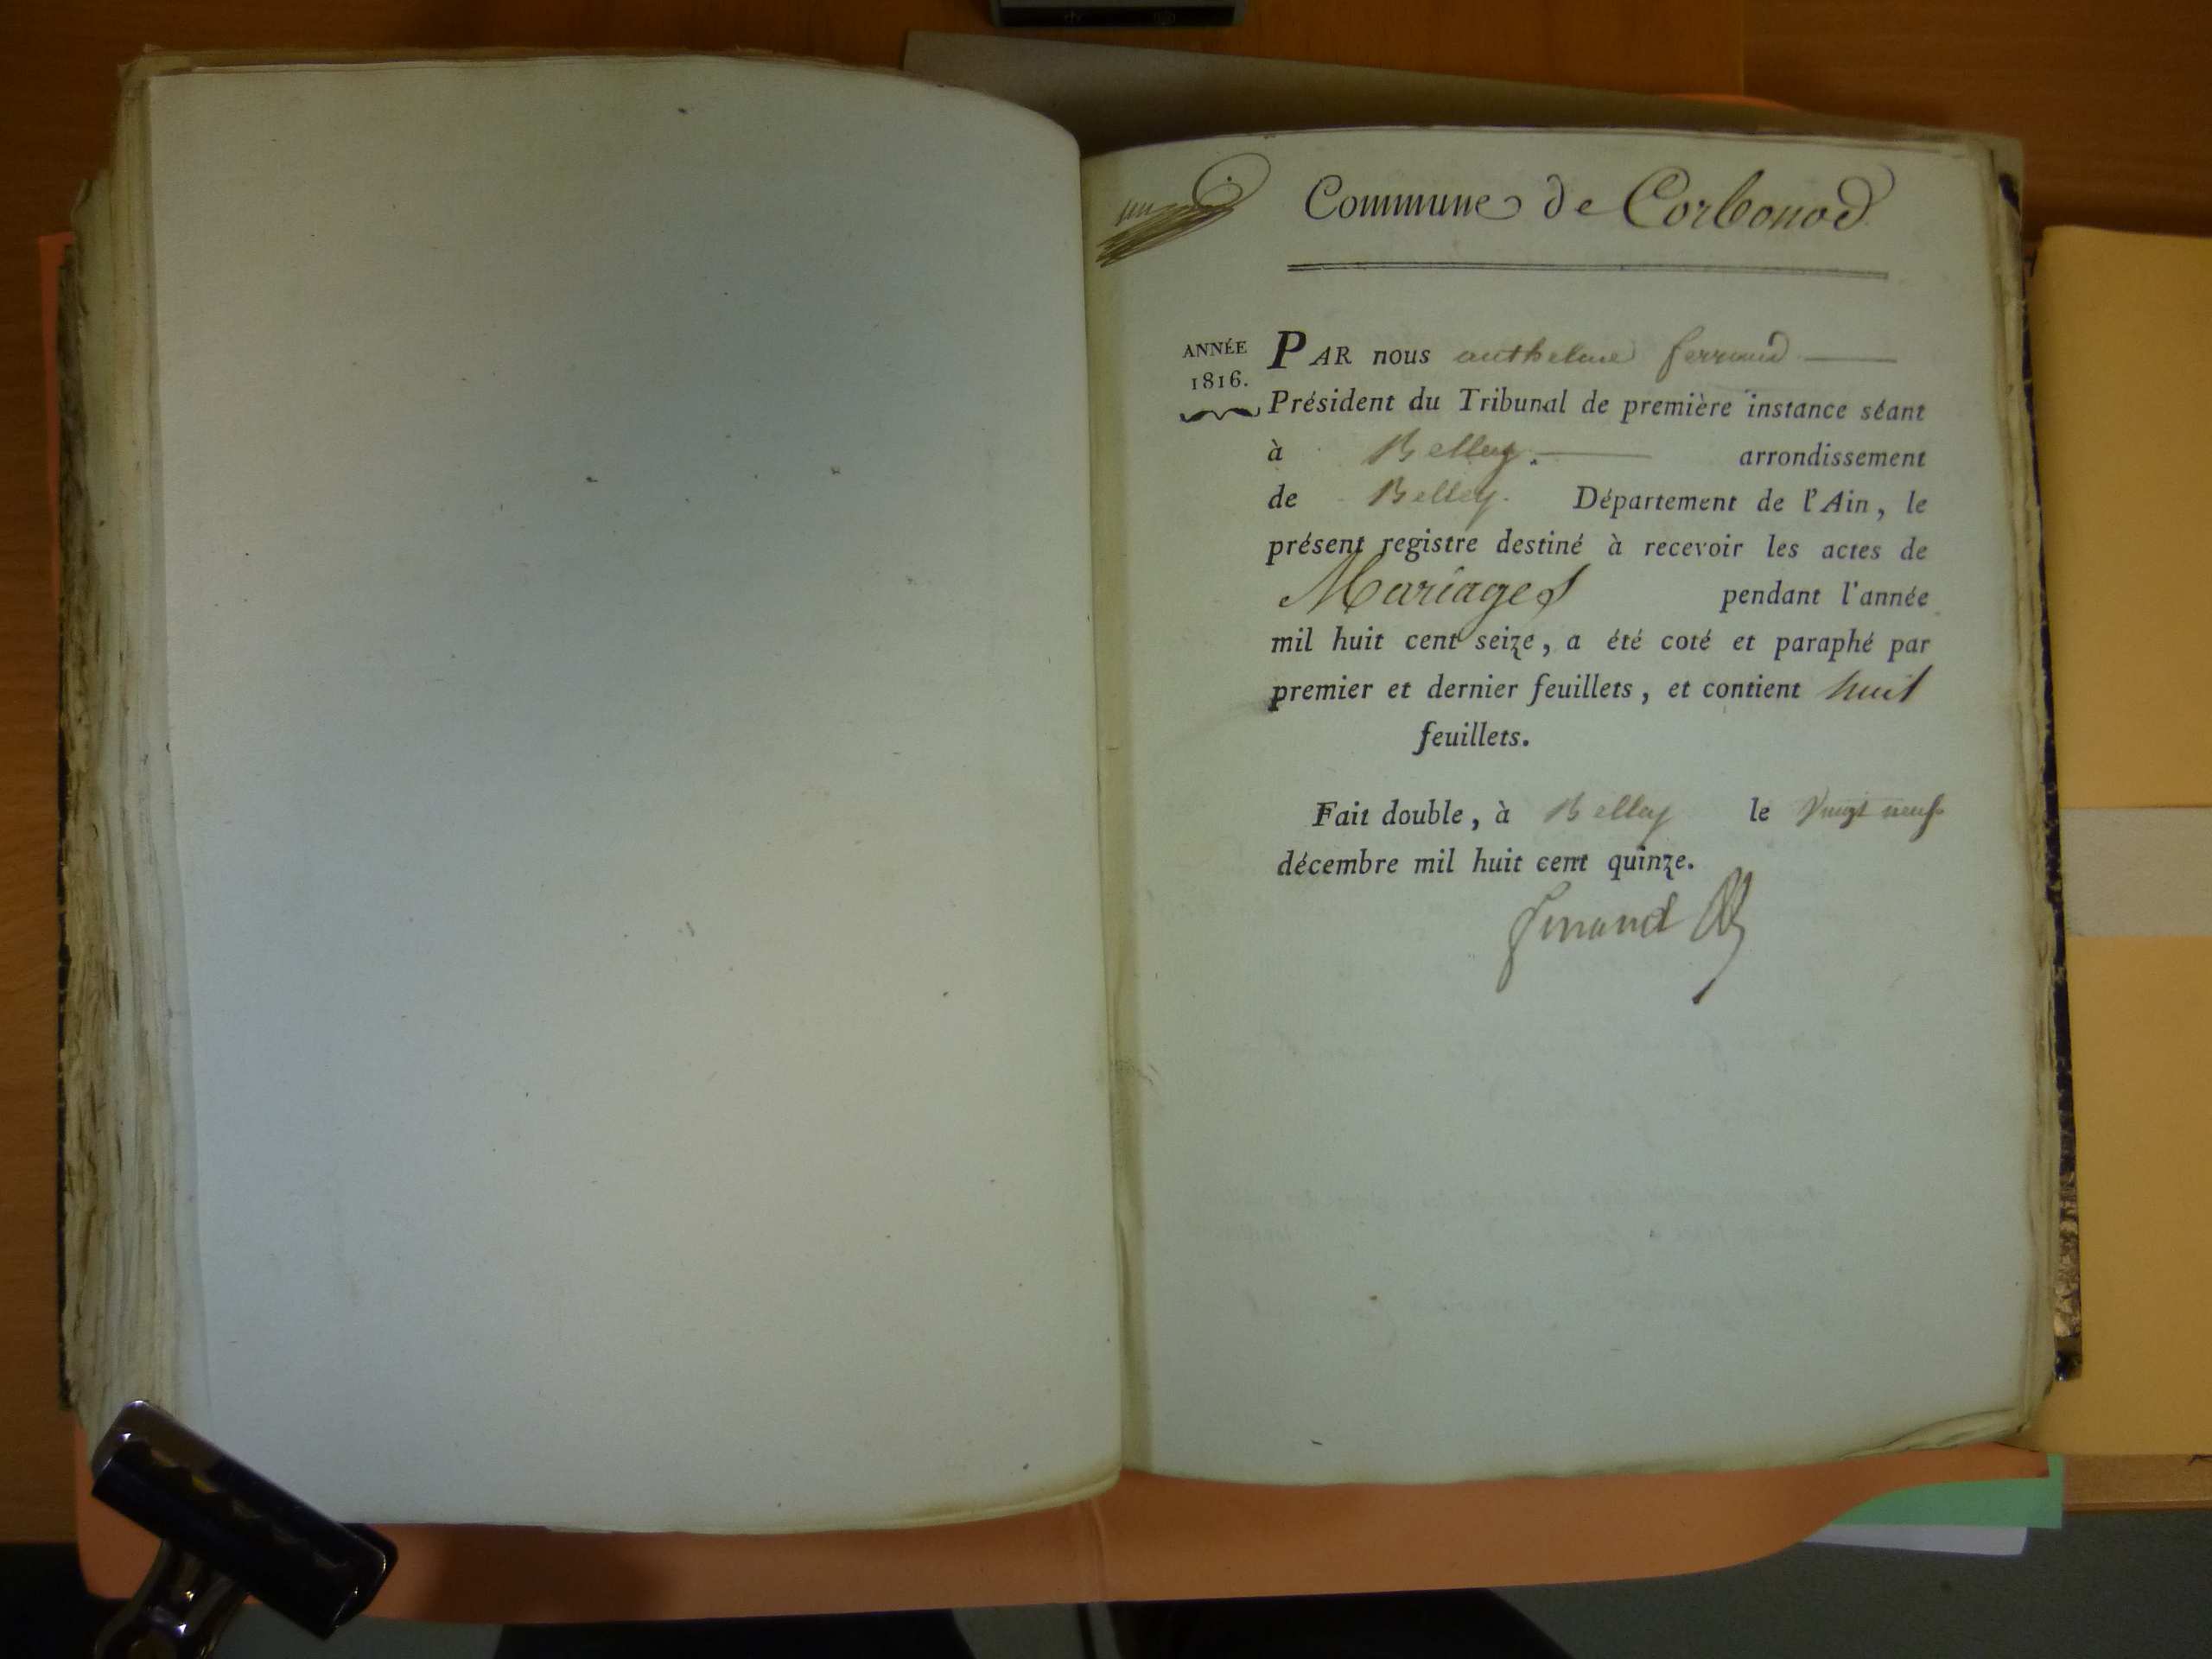 un
Commune de Corbonod
ANNÉE
1816.
PAR nous anthelme ferrand
Président du Tribunal de première instance séant
à Belley. arrondissement
de Belley. Département de l'Ain, le
présent registre destiné à recevoir les actes de
Mariages pendant l'année
mil huit cent seize, a été coté et paraphé par
premier et dernier feuillets, et contient huit
feuillets.
Fait double, à Belley le Vingt neuf
décembre mil huit cent quinze.
ferrand